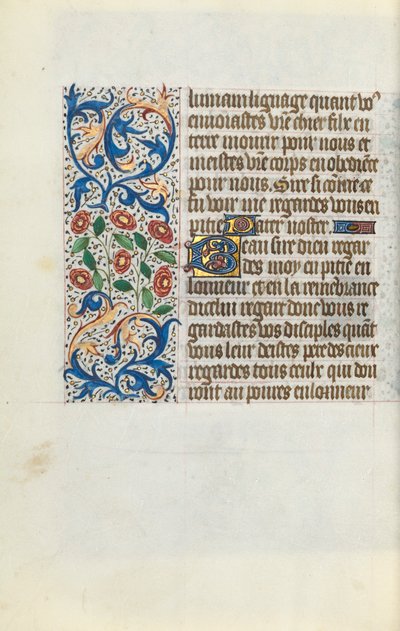 lumain lignage quant vo⁹
enuoiastes vr̃e chier filz en
terre mourir pour nous et
meistes vr̃e corps en obediẽce
pour nous. Sire si cõme ce
fu voir me regardes vous en
pitie Pater noster
Beau sire dieu regar
des moy en pitie en
lonneur et en la remẽbrance
dicelui regart dont vous re
gardastes vos disciples quãt
vous leur deistes predescieur
regardes tous ceulx qui don
ront au poures en lonneur